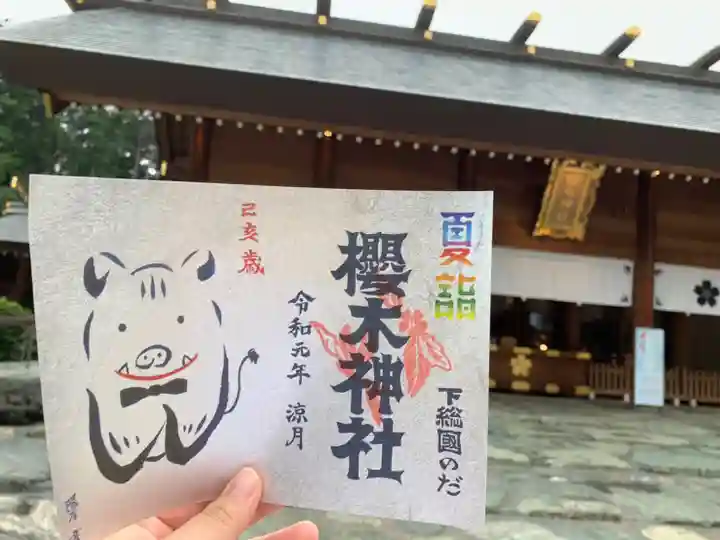 夏詣
下総國のだ
櫻木神社
己亥歳
令和元年 涼月